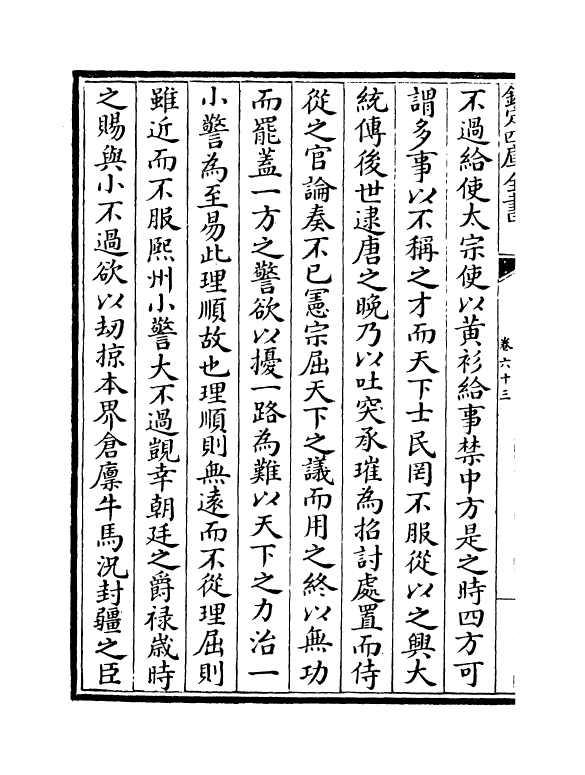 欽定四庫全書
卷六十三
不過給使太宗使以黄衫給事禁中方是之時四方可
謂多事以不稱之才而天下士民罔不服從以之興大
統傳後世逮唐之晩乃以吐突承璀為招討處置而侍
從之官論奏不已憲宗屈天下之議而用之終以無功
而罷蓋一方之警欲以擾一路為難以天下之力治一
小警為至易此理順故也理順則無逺而不從理屈則
雖近而不服熙州小警大不過覬幸朝廷之爵禄歲時
之賜與小不過欲以刧掠本界倉廩牛馬況封疆之臣